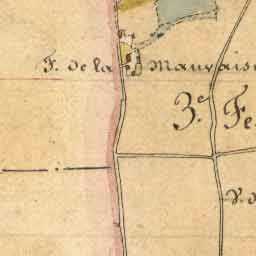 F. de la Mauvais
3.e Fe